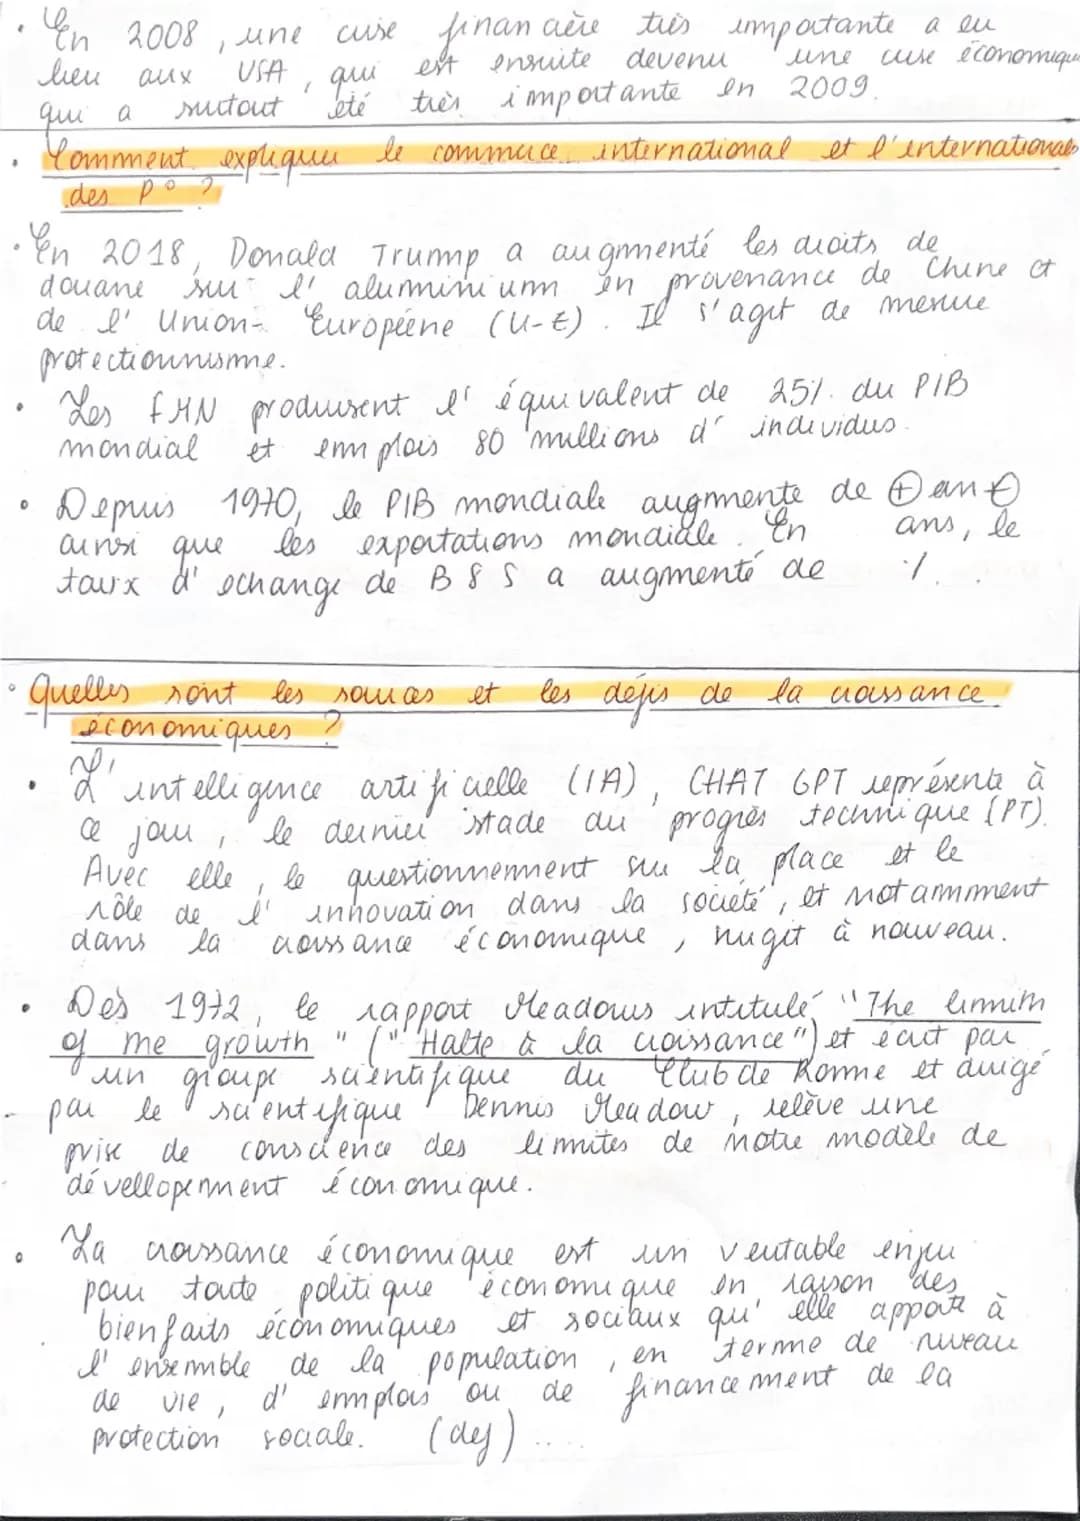 • En 2008, une crise financière très importante a eu
lieu aux USA, qui est ensuite devenu une crise économique
qui a surtout été très importante en 2009.
• Comment expliquer le commerce international et l'international
des P° ?
• En 2018, Donald Trump a augmenté les droits de
douane sur l'aluminium en provenance de Chine et
de l'Union-Européene (U-E). Il s'agit de mesure
protectionnisme.
• Les FMN produisent l'équivalent de 25% du PIB
mondial et emplois 80 millions d'individus.
• Depuis 1970, le PIB mondiale augmente de ⊕ en ⊕
ainsi que les exportations mondiale. En ans, le
taux d'échange de B & S a augmenté de %...
• Quelles sont les sources et les défis de la croissance
économiques ?
• L'intelligence artificielle (IA), CHAT GPT représente à
ce jour, le dernier stade du progrès technique (PT).
Avec elle, le questionnement sur la place et le
rôle de l'innovation dans la société, et notamment
dans la croissance économique, rugit à nouveau.
• Dès 1972, le rapport Meadows intitulé "The limith
of me growth" ("Halte à la croissance") et écrit par
un groupe scientifique du Club de Rome et dirigé
par le scientifique Dennis Meadow, relève une
prise de conscience des limites de notre modèle de
dévellopement économique.
• La croissance économique est un veritable enjeu
pour toute politique économique en raison des
bienfaits économiques et sociaux qu'elle apporte à
l'ensemble de la population, en terme de niveau
de vie, d'emplois ou de financement de la
protection sociale. (def) .....